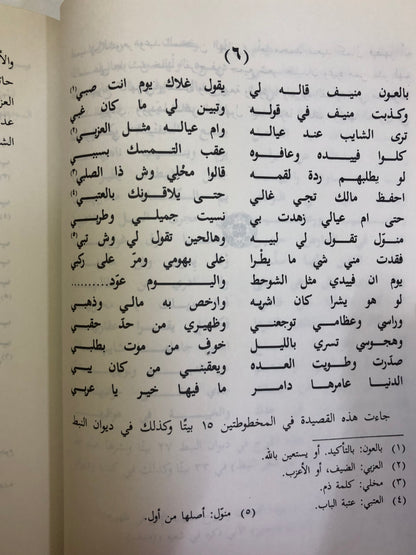 (٦)
بالعون منيف قاله لي يقول غلاك يوم انت صبي(١)
وكذبت منيف في قوله وتبين لي ما كان غبي
ترى الشايب عند عياله وام عياله مثل العزبي(٢)
كلوا فيده وعافوه عقب التمسك بسببي
لو يطلبهم ردة لقمه قالوا مخلي وش ذا الصلبي(٣)
احفظ مالك تجي غالي حتى يلاقونك بالعتبي(٤)
حتى ام عيالي زهدت بي نسيت جميلي وطربي
منول تقول لي لبيه وهالحين تقول لي وش تبي(٥)
فقدت مني شي ما يطرا على بهومي ومر على ركبي
يوم ان فيدي مثل الشوحط واليوم عود..........
لو هو يشرا كان اشريه وارخص به مالي وذهبي
وراسي وعظامي توجعني وظهيري من حد حقبي
وهجوسي تسري بالليل خوف من موت يطلبي
صدرت وطويت العده ويعقبني من كان يبي
الدنيا عامرها دامر ما فيها خير يا عربي
جاءت هذه القصيدة في المخطوطتين ١٥ بيتًا وكذلك في ديوان النبط
(١) بالعون: بالتأكيد. أو يستعين بالله.
(٢) العزبي: الضيف، أو الأعزب.
(٣) مخلي: كلمة ذم.
(٤) العتبي: عتبة الباب.
(٥) منوّل: أصلها من أول.